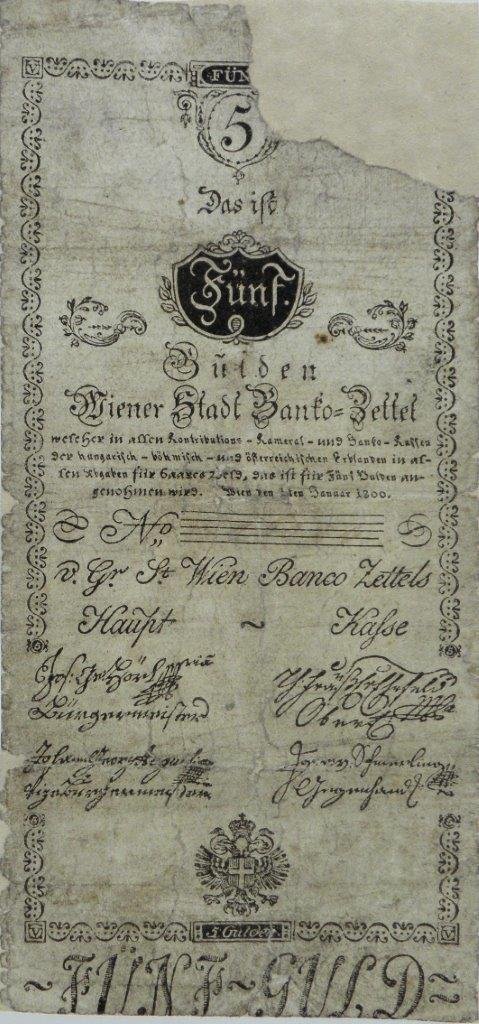 V FÜN
5
Das ist
Fünf.
Gulden
Wiener Stadt Banko-Zettel
welcher in allen Kontributions - Kameral - und Banko - Kassen
der hungarisch - böhmisch - und österreichischen Erblanden in al-
len Abgaben für baares Geld, das ist für Fünf Gulden an-
genohmen wird. Wien den 1ten Januar 1800.
No
v. Gr St Wien Banco Zettels
Haupt ~ Kasse
Bürgermeister
V 5 Gulden V
~ FUNF ~ GULD ~